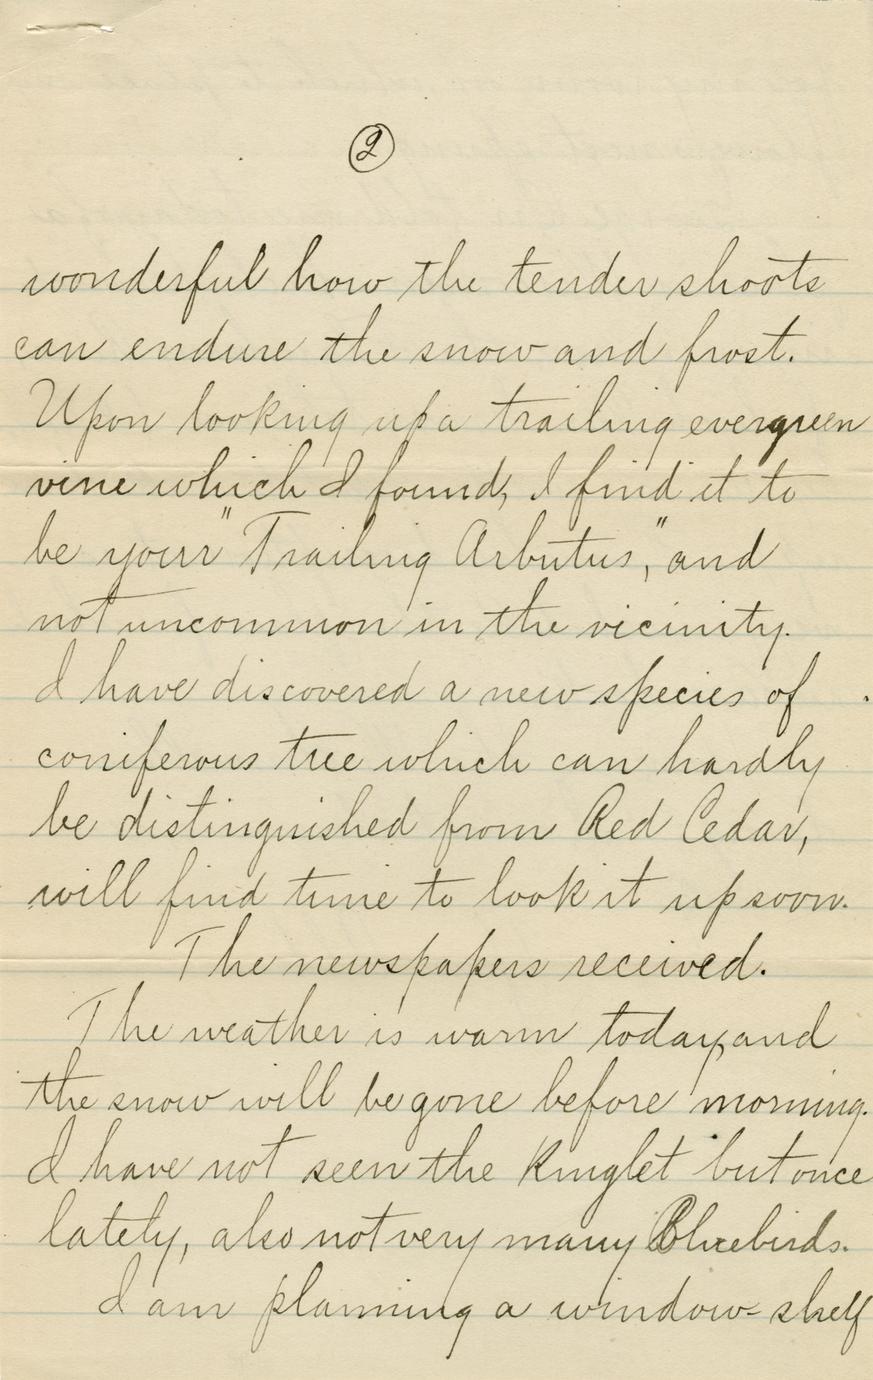 2
wonderful how the tender shoots
can endure the snow and frost.
Upon looking up a trailing evergreen
vine which I found, I find it to
be your "Trailing Arbutus," and
not uncommon in the vicinity.
I have discovered a new species of
coniferous tree which can hardly
be distinguished from Red Cedar,
will find time to look it up soon.
The newspapers received.
The weather is warm today, and
the snow will be gone before morning.
I have not seen the Kinglet but once
lately, also not very many Bluebirds.
I am planning a window-shelf